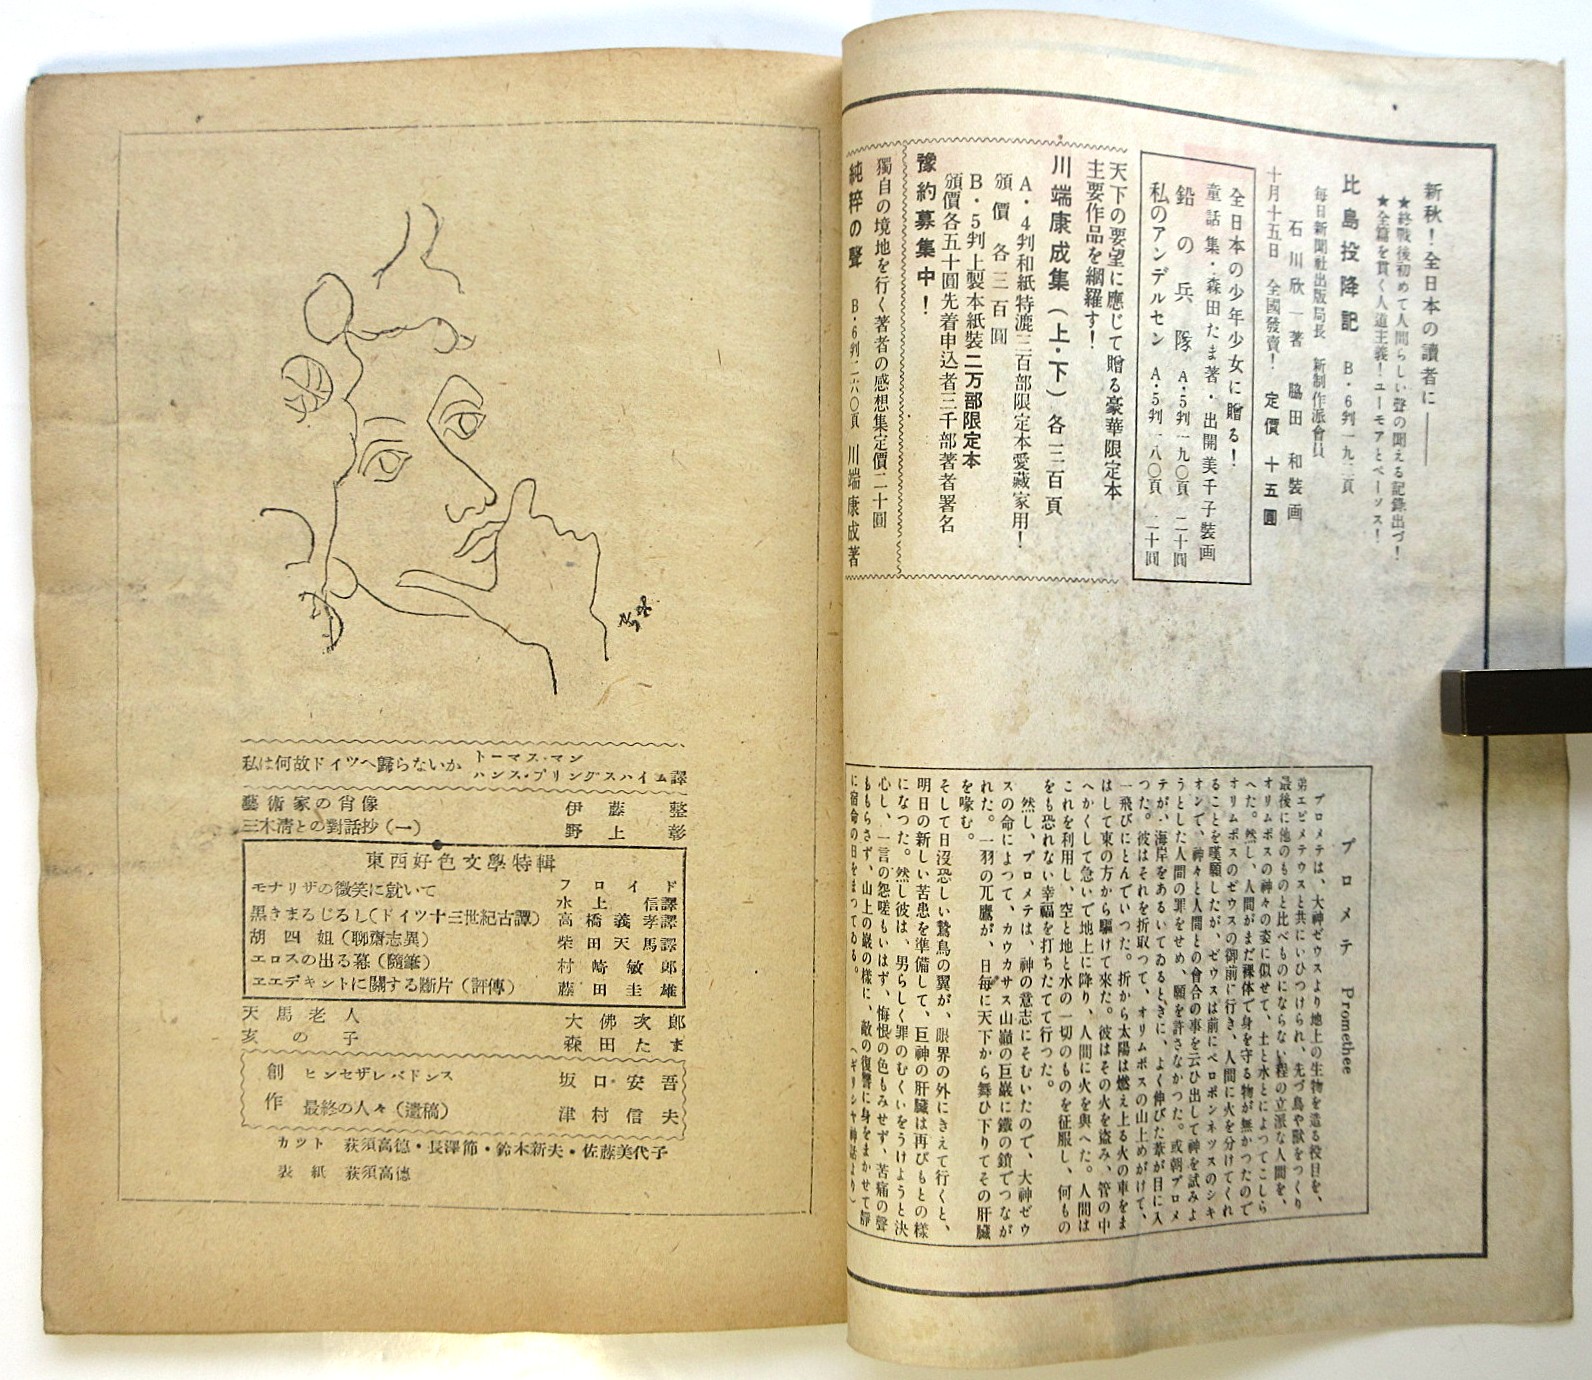 新秋!全日本の讀者に——
★終戰後初めて人間らしい聲の聞える記錄出づ!
★全篇を貫く人道主義!ユーモアとペーソス!
比島投降記 B・6判一九二頁
每日新聞社出版局長 新制作派會員
石川欣一著 脇田和裝画
十月十五日 全國發賣! 定價 十五圓
全日本の少年少女に贈る!
童話集・森田たま著・出開美千子裝画
鉛の兵隊 A・5判一九〇頁 二十圓
私のアンデルセン A・5判一八〇頁 二十圓
天下の要望に應じて贈る豪華限定本
主要作品を網羅す!
川端康成集(上・下)各三百頁
A・4判和紙特漉三百部限定本愛藏家用!
頒價 各三百圓
B・5判上製本紙裝二万部限定本
頒價各五十圓先着申込者三千部著者署名
豫約募集中!
獨自の境地を行く著者の感想集定價二十圓
純粹の聲 B・6判二六〇頁 川端康成著
プロメテ Promethee
プロメテは、大神ゼウスより地上の生物を造る役目を、
弟エピメテウスと共にいひつけられ、先づ鳥や獸をつくり
最後に他のものと比べものにならない程の立派な人間を、
オリムポスの神々の姿に似せて、土と水とによつてこしら
へた。然し、人間がまだ裸体で身を守る物が無かつたので
オリムポスのゼウスの御前に行き、人間に火を分けてくれ
ることを嘆願したが、ゼウスは前にペロポンネソスのシキ
オンで、神々と人間との會合の事を云ひ出して神を試みよ
うとした人間の罪をせめ、願を許さなかつた。或朝プロメ
テが、海岸をあるいてゐるときに、よく伸びた葦が目に入
つた。彼はそれを折取つて、オリムポスの山上めがけて、
一飛びにとんでいつた。折から太陽は燃え上る火の車をま
はして東の方から驅けて來た。彼はその火を盗み、管の中
へかくして急いで地上に降り、人間に火を與へた。人間は
これを利用し、空と地と水の一切のものを征服し、何もの
をも恐れない幸福を打ちたてて行つた。
然し、プロメテは、神の意志にそむいたので、大神ゼウ
スの命によつて、カウカサス山巓の巨巖に鐵の鎖でつなが
れた。一羽の兀鷹が、日每に天下から舞ひ下りてその肝臟
を喙む。
そして日沒恐しい鷲鳥の翼が、眼界の外にきえて行くと、
明日の新しい苦患を準備して、巨神の肝臟は再びもとの樣
になつた。然し彼は、男らしく罪のむくいをうけようと決
心し、一言の怨嗟もいはず、悔恨の色もみせず、苦痛の聲
ももらさず、山上の巖の樣に、敵の復讐に身をまかせて靜
に宿命の日をまつてゐる。 (ギリシヤ神話より)
私は何故ドイツへ歸らないか トーマス・マン
ハンス・プリングスハイム譯
藝術家の肖像 伊藤整
三木淸との對話抄(一) 野上彰
東西好色文學特輯
モナリザの微笑に就いて フロイド
水上信譯
黑きまるじるし(ドイツ十三世紀古譚) 高橋義孝譯
胡四姐(聊齋志異) 柴田天馬譯
エロスの出る幕(隨筆) 村崎敏郞
ヱエデキントに關する斷片(評傳) 藤田圭雄
天馬老人 大佛次郞
亥の子 森田たま
創作
ヒンセザレバドンス 坂口安吾
最終の人々(遺稿) 津村信夫
カツト 荻須高德・長澤節・鈴木新夫・佐藤美代子
表紙 荻須高德